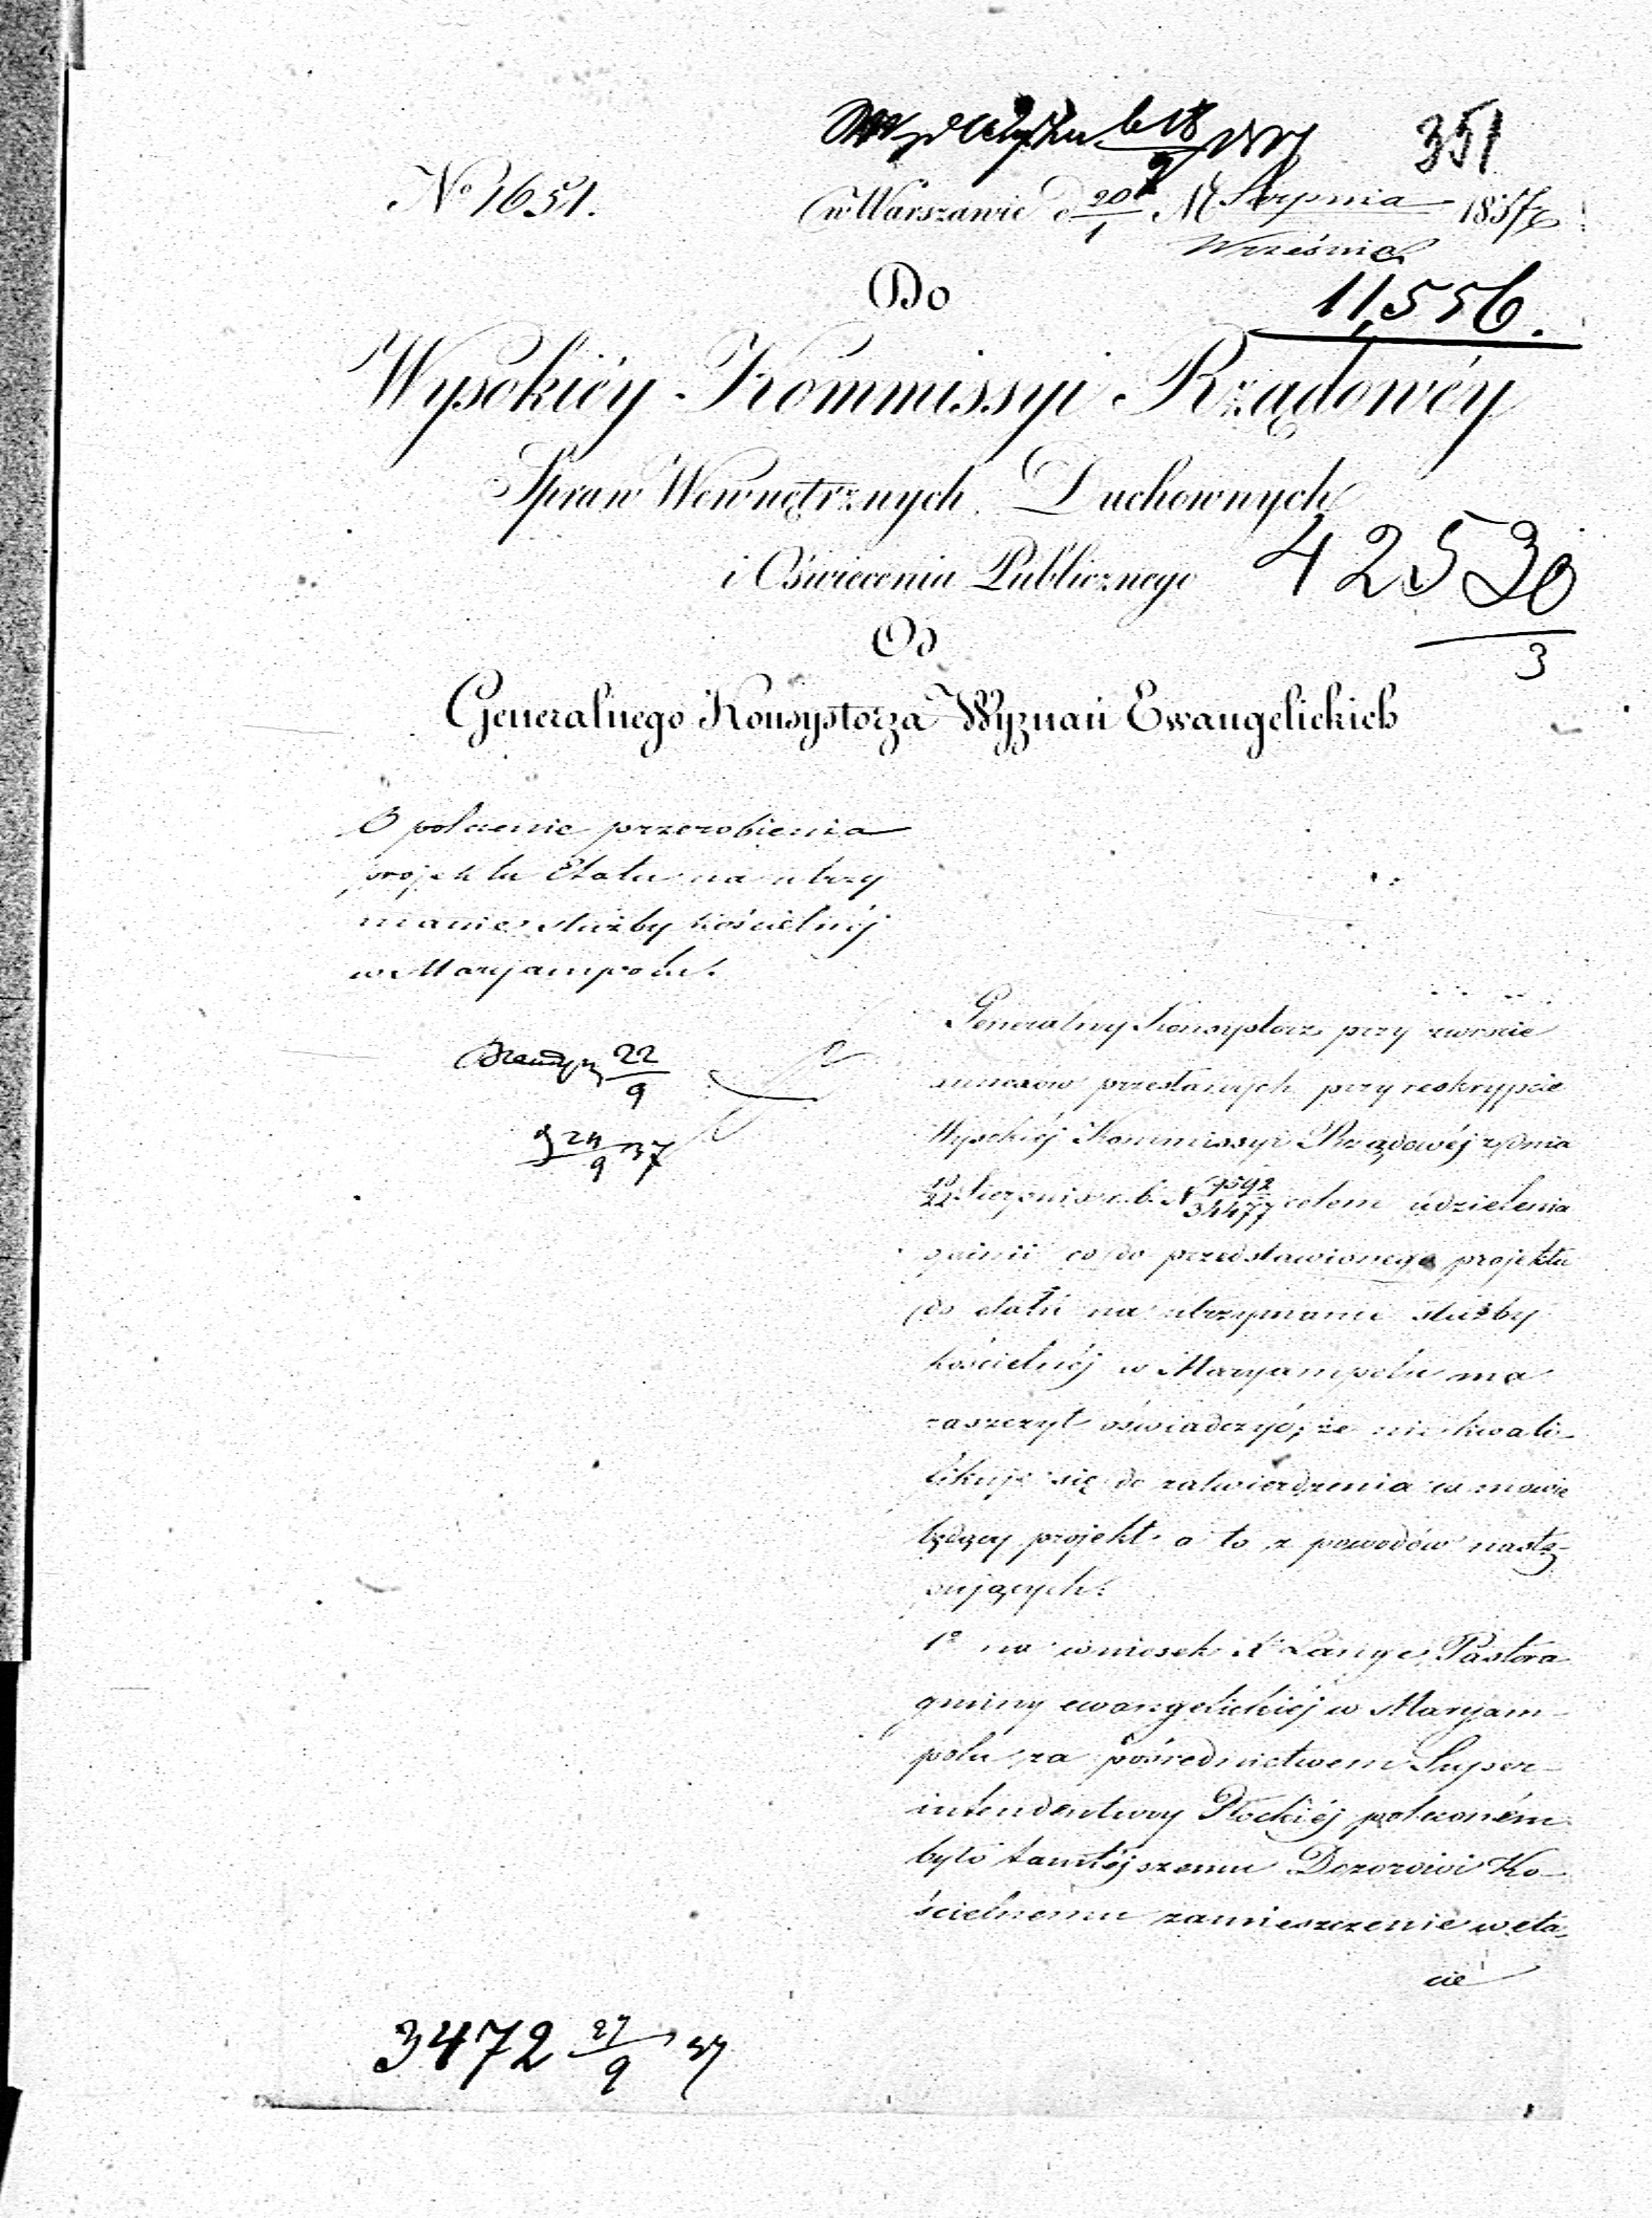 351
№ 1651.
w Warszawie d 20/1 M Sierpnia 1837 r
Września
Do
11,556.
Wysokiéy Kommissyi Rządowéy
Spraw Wewnętrznych, Duchownych
i Oświecenia Publicznego
42530
3
Od
Generalnego Konsystorza Wyznań Ewangelickich
O polecenie przerobienia
projektu Etatu na utrzy
manie służby kościelnéj
w Maryampolu.
22/9
24/9 37
Generalny Konsystorz przy zwrocie
annexów przesłanych przy reskrypcie
Wysokiéj Kommissyi Rządowéj z dnia
10/22 Sierpnia r. b. N 7592/34477 celem udzielenia
opinii co do przedstawionego projektu
do etatu na utrzymanie służby
kościelnéj w Maryampolu ma
zaszczyt oświadczyć, że nie kwali-
fikuje się do zatwierdzenia w mowie
będący projekt a to z powodów nastę-
pujących:
1º na wniosek X Lange Pastora
gminy ewangelickiéj w Maryam-
polu za pośrednictwem Super-
intendentury Płockiéj poleconém
było tamtéjszemu Dozorowi Ko-
ścielnemu zamieszczenie w eta-
cie
3472 27/9 37